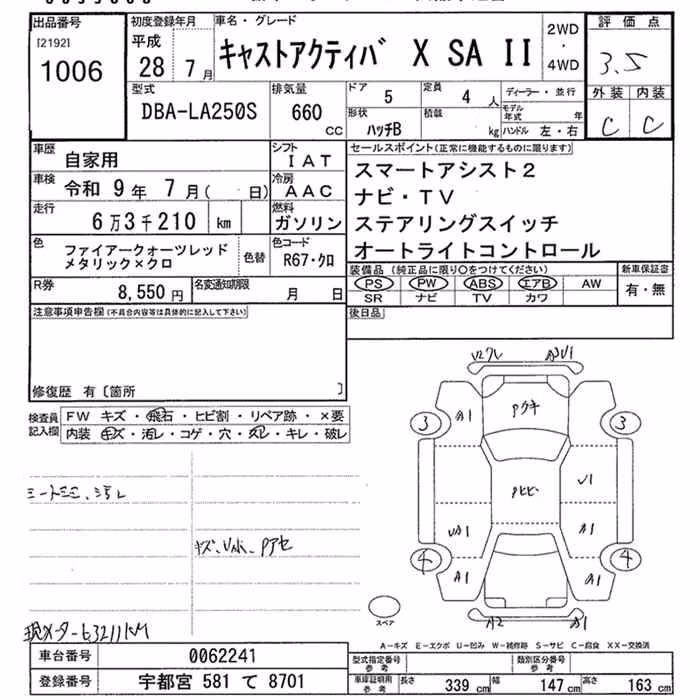 出品番号
[2192]
1006
初度登録年月
平成
28 年 7 月
車名・グレード
キャストアクティバ X SA II
2WD
・
4WD
評価点
3.5
外装 内装
C C
型式
DBA-LA250S
排気量
660 CC
ドア
5
定員
4 人
形状
ハッチB
積載
kg
ディーラー・並行
モデル年式 年
ハンドル 左・右
車歴
自家用
シフト
IAT
車検
令和 9 年 7 月( 日)
冷房
AAC
走行
6万3千210 km
燃料
ガソリン
色
ファイアークォーツレッド
メタリック×クロ
色替
色コード
R67・クロ
セールスポイント(正常に機能するものに限ります)
スマートアシスト2
ナビ・TV
ステアリングスイッチ
オートライトコントロール
R券
8,550 円
名変通知期限
月 日
装備品(純正品に限り○をつけてください)
PS PW ABS エアB AW
SR ナビ TV カワ
新車保証書
有・無
注意事項申告欄(不具合内容等は具体的に記入して下さい)
後日品
修復歴 有〔箇所 〕
検査員記入欄
FW キズ・飛石・ヒビ割・リペア跡・×要
内装 キズ・汚レ・コゲ・穴・スレ・キレ・破レ
キズ、
現メーター63211KM
A1
Pワキ
3
3
Pヒビ
U1
A1
4
4
A1
A1
A2
スペア
A-キズ E-エクボ U-凹み W-補修跡 S-サビ C-腐食 XX-交換済
車台番号
0062241
登録番号
宇都宮 581 て 8701
型式指定番号
参考
類別区分番号
参考
車庫証明用
参考
長さ 339 cm
幅 147 cm
高さ 163 cm